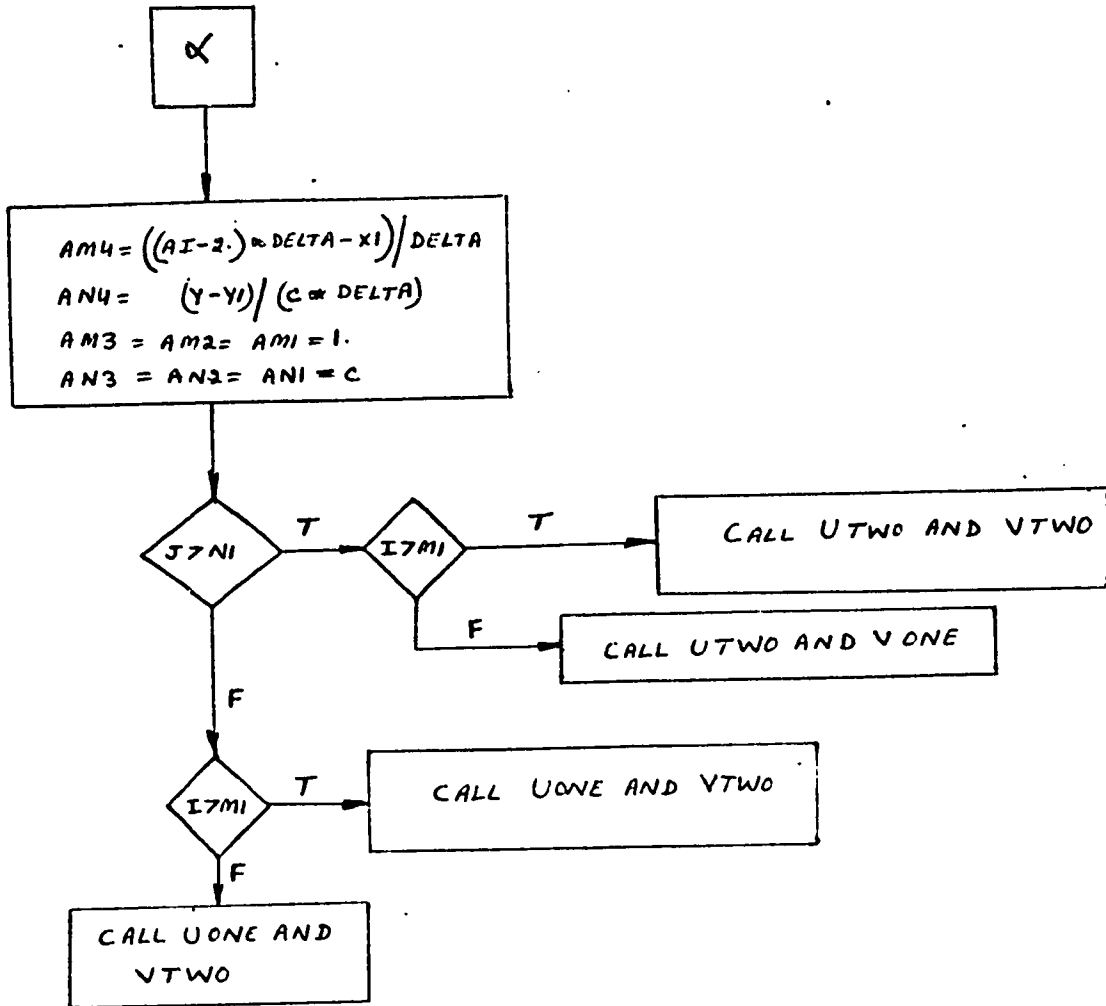 α
AM4 = ((AI-2.) * DELTA - X1) / DELTA
AN4 = (Y-Y1) / (C * DELTA)
AM3 = AM2 = AM1 = 1.
AN3 = AN2 = AN1 = C
J>N1
T
I>M1
T
CALL UTWO AND VTWO
F
CALL UTWO AND VONE
F
I>M1
T
CALL UONE AND VTWO
F
CALL UONE AND
VTWO